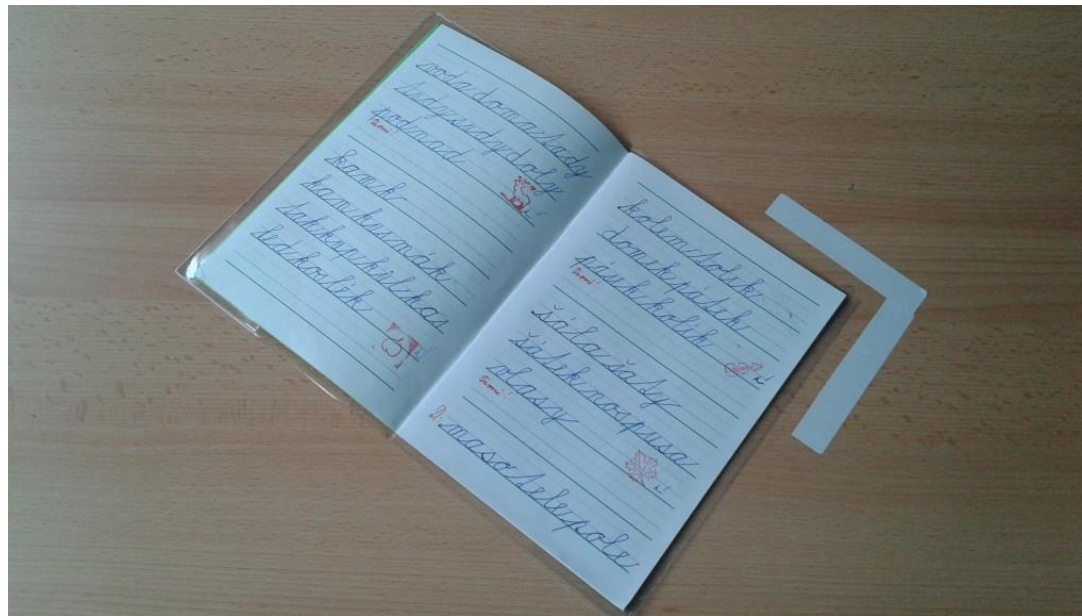 voda doma tady
tudy sudy doly
pod nad
kamk
kam kus mák
tak kup kolik kas
led kos lék
kolem stolek
domek pátek
pásek kolík
šála šaty
šátek nos pusa
vlasy
maso tele pole